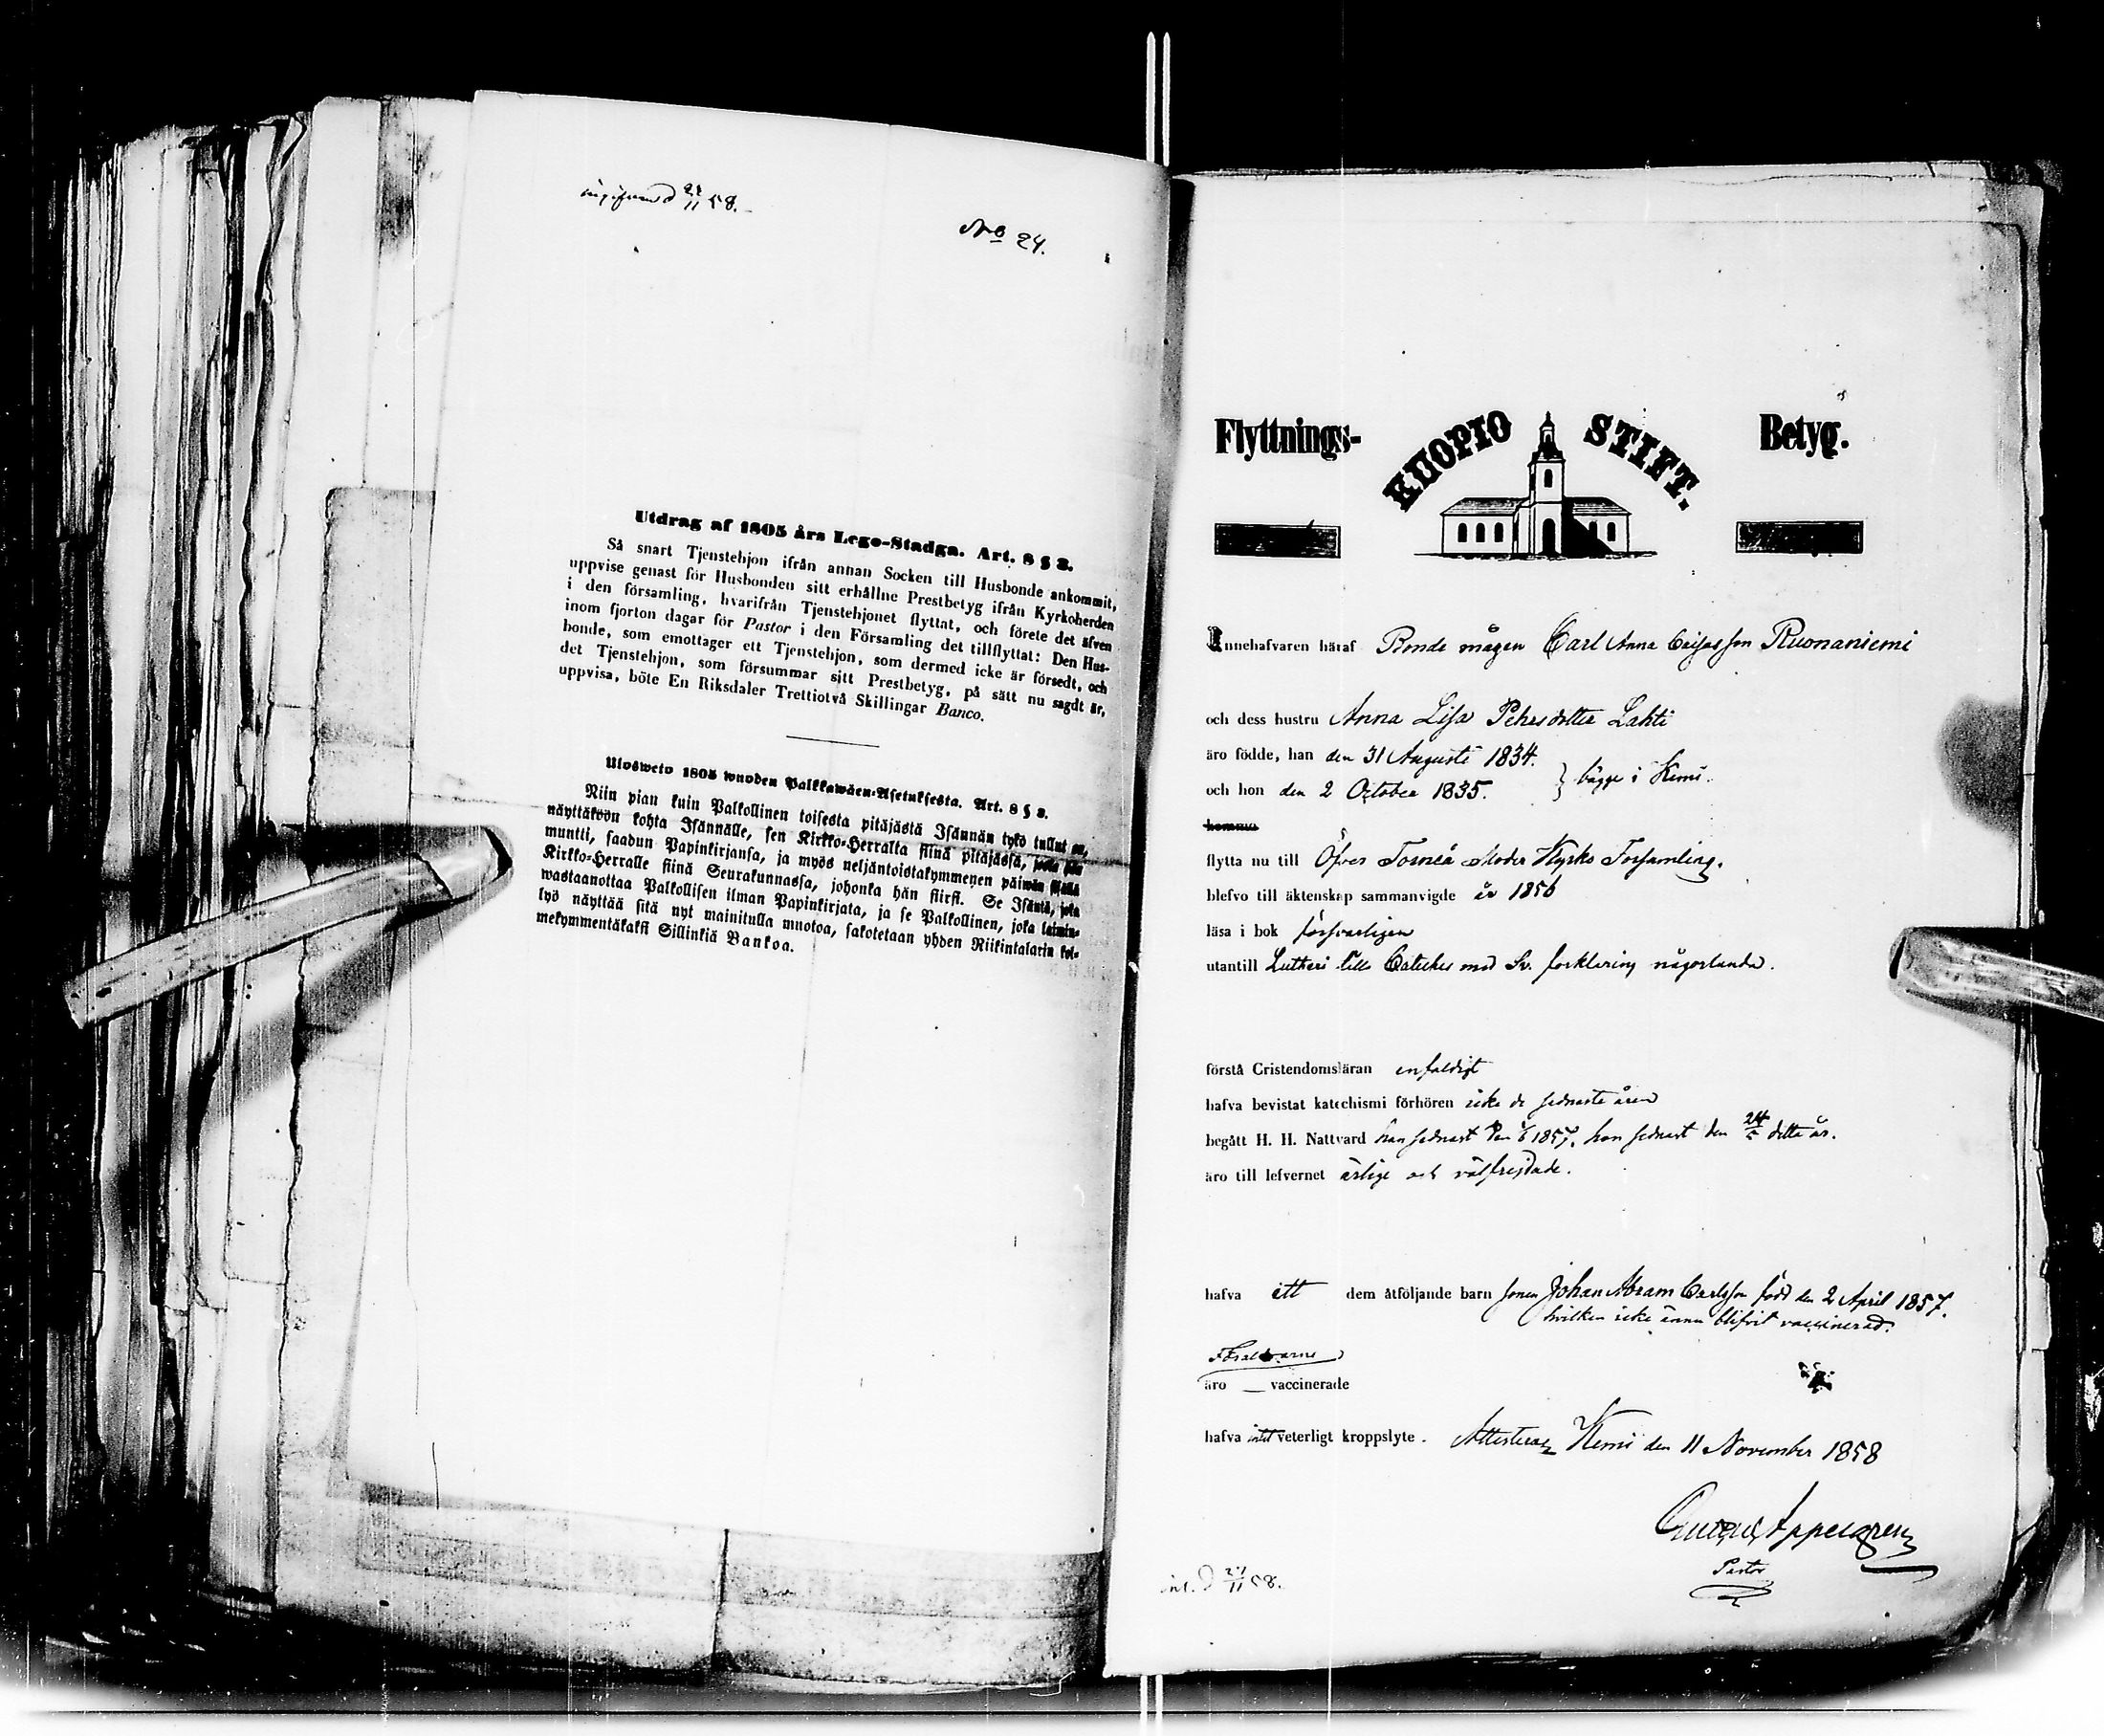 d 27/11 58.
No 24.
Utdrag af 1805 års Lego-Stadga. Art. 8 § 3.
Så snart Tjenstehjon ifrån annan Socken till Husbonde ankommit,
uppvise genast för Husbonden sitt erhållne Prestbetyg ifrån Kyrkoherden
i den församling, hvarifrån Tjenstehjonet flyttat, och förete det äfven
inom fjorton dagar för Pastor i den Församling det tillflyttat: Den Hus-
bonde, som emottager ett Tjenstehjon, som dermed icke är försedt, och
det Tjenstehjon, som försummar sitt Prestbetyg, på sätt nu sagdt är,
uppvisa, böte En Riksdaler Trettiotvå Skillingar Banco.
Ulosweto 1805 wuoden Palkkawäen-Asetuksesta. Art. 8 § 3.
Niin pian kuin Palkollinen toisesta pitäjästä Isännän tykö tullut on,
näyttäköön kohta Isännälle, sen Kirkko-Herralta siinä pitäjässä, josta hän
muutti, saadun Papinkirjansa, ja myös neljäntoistakymmenen päiwän sisällä
Kirkko-Herralle siinä Seurakunnassa, johonka hän siirsi. Se Isäntä, joka
wastaanottaa Palkollisen ilman Papinkirjata, ja se Palkollinen, joka laimin-
lyö näyttää sitä nyt mainitulla muotoa, sakotetaan yhden Riikintalarin kol-
mekymmentäkaksi Sillinkiä Bankoa.
Flyttnings- KUOPIO STIFT. Betyg.
Innehafvaren häraf Bonde mågen Carl Anna Caisasson Ruonaniemi
och dess hustru Anna Lisa Pehrsdotter Lahti
äro födde, han den 31 Augusti 1834.
och hon den 2 October 1835. } bägge i Kemi.
komma
flytta nu till Öfver Torneå Moder Kyrko Församling.
blefvo till äktenskap sammanvigde år 1856
läsa i bok försvarligen
utantill Lutheri lilla Cateches med Sv. förklaring någorlunda.
förstå Cristendomsläran enfaldigt
hafva bevistat katechismi förhören icke de sednaste åren
begått H. H. Nattvard han sednast den 1857. hon sednast den 24/5 detta år.
äro till lefvernet ärlige och välfrejdade.
hafva ett dem åtföljande barn sonen Johan Abram Carlsson född den 2 April 1857.
hvilken icke ännu blifvit vaccinerad.
Föräldrarne
äro — vaccinerade
hafva intet veterligt kroppslyte. Attesterar Kemi den 11 November 1858
Appelgren
Pastor
inl. d 27/11 58.